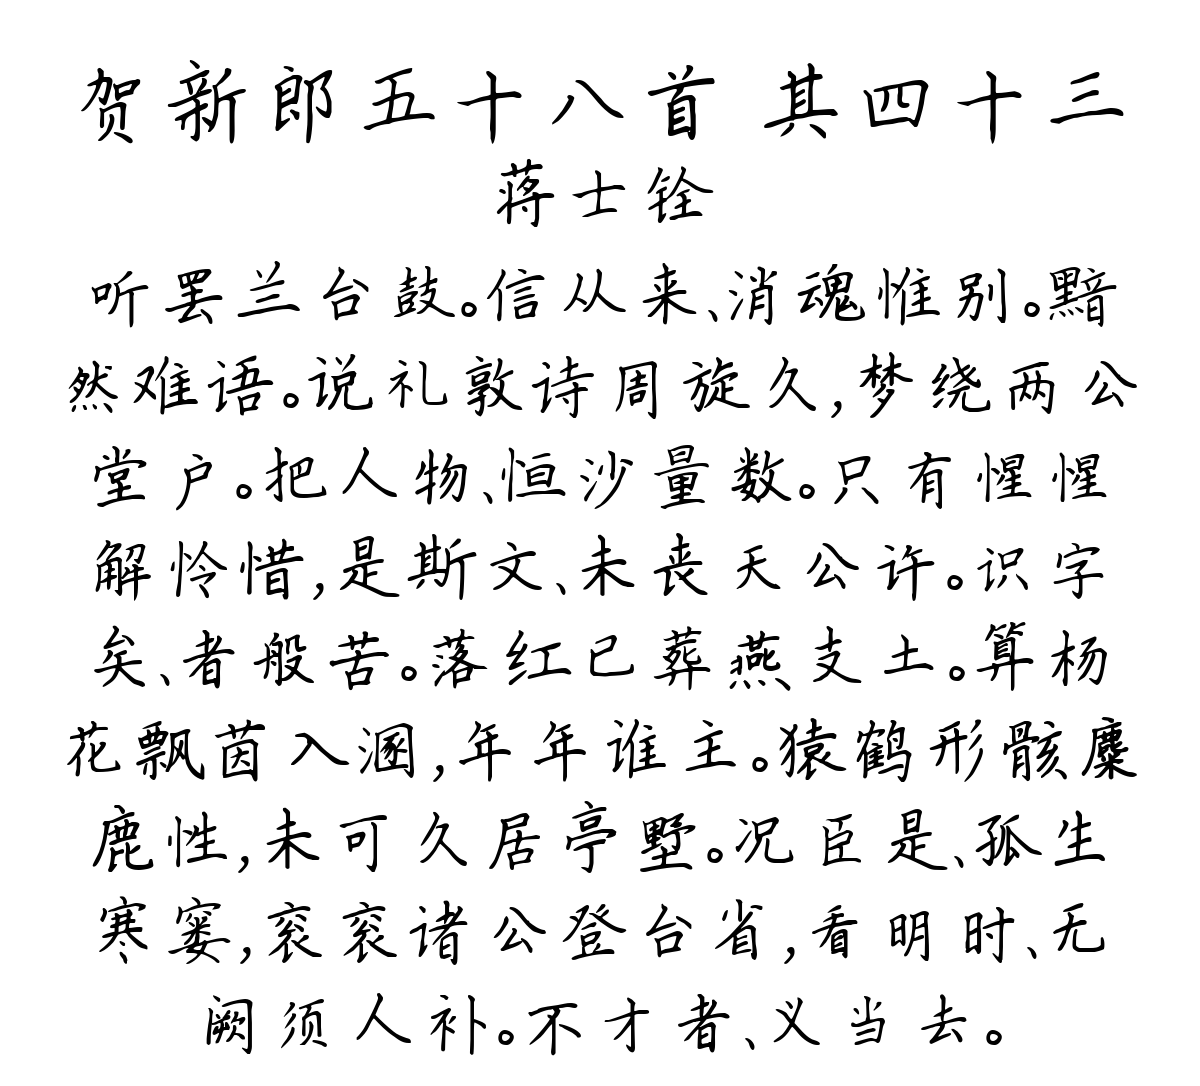 贺新郎五十八首 其四十三
蒋士铨
听罢兰台鼓。信从来、消魂惟别。黯
然难语。说礼敦诗周旋久,梦绕两公
堂户。把人物、恒沙量数。只有惺惺
解怜惜,是斯文、未丧天公许。识字
矣、者般苦。落红已葬燕支土。算杨
花飘茵入溷,年年谁主。猿鹤形骸麋
鹿性,未可久居亭墅。况臣是、孤生
寒窭,衮衮诸公登台省,看明时、无
阙须人补。不才者、义当去。